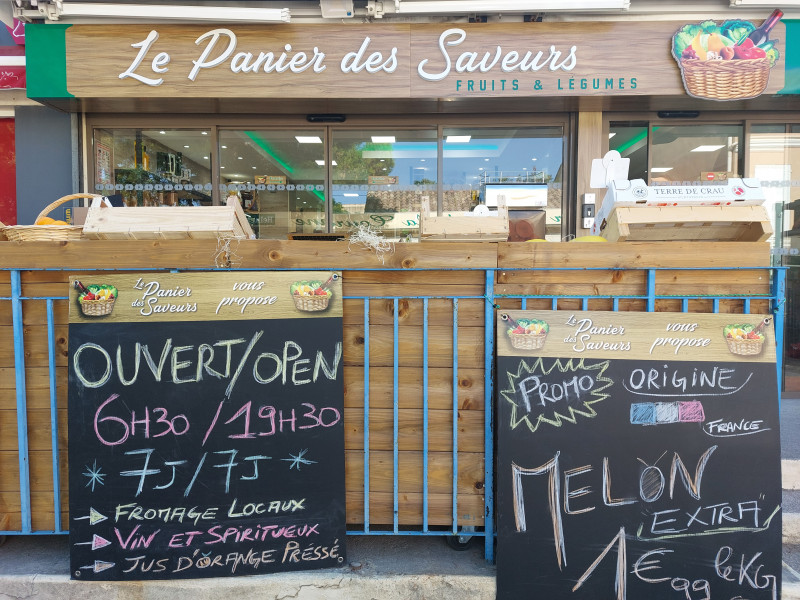 Le Panier des Saveurs
FRUITS & LÉGUMES
TERRE DE CRAU
Le Panier des Saveurs
vous propose
OUVERT/OPEN
6H30 / 19H30
7J / 7J
FROMAGE LOCAUX
VIN ET SPIRITUEUX
JUS D'ORANGE PRESSÉ
Le Panier des Saveurs
vous propose
PROMO
ORIGINE
FRANCE
MELON
EXTRA"
1€99 le KG